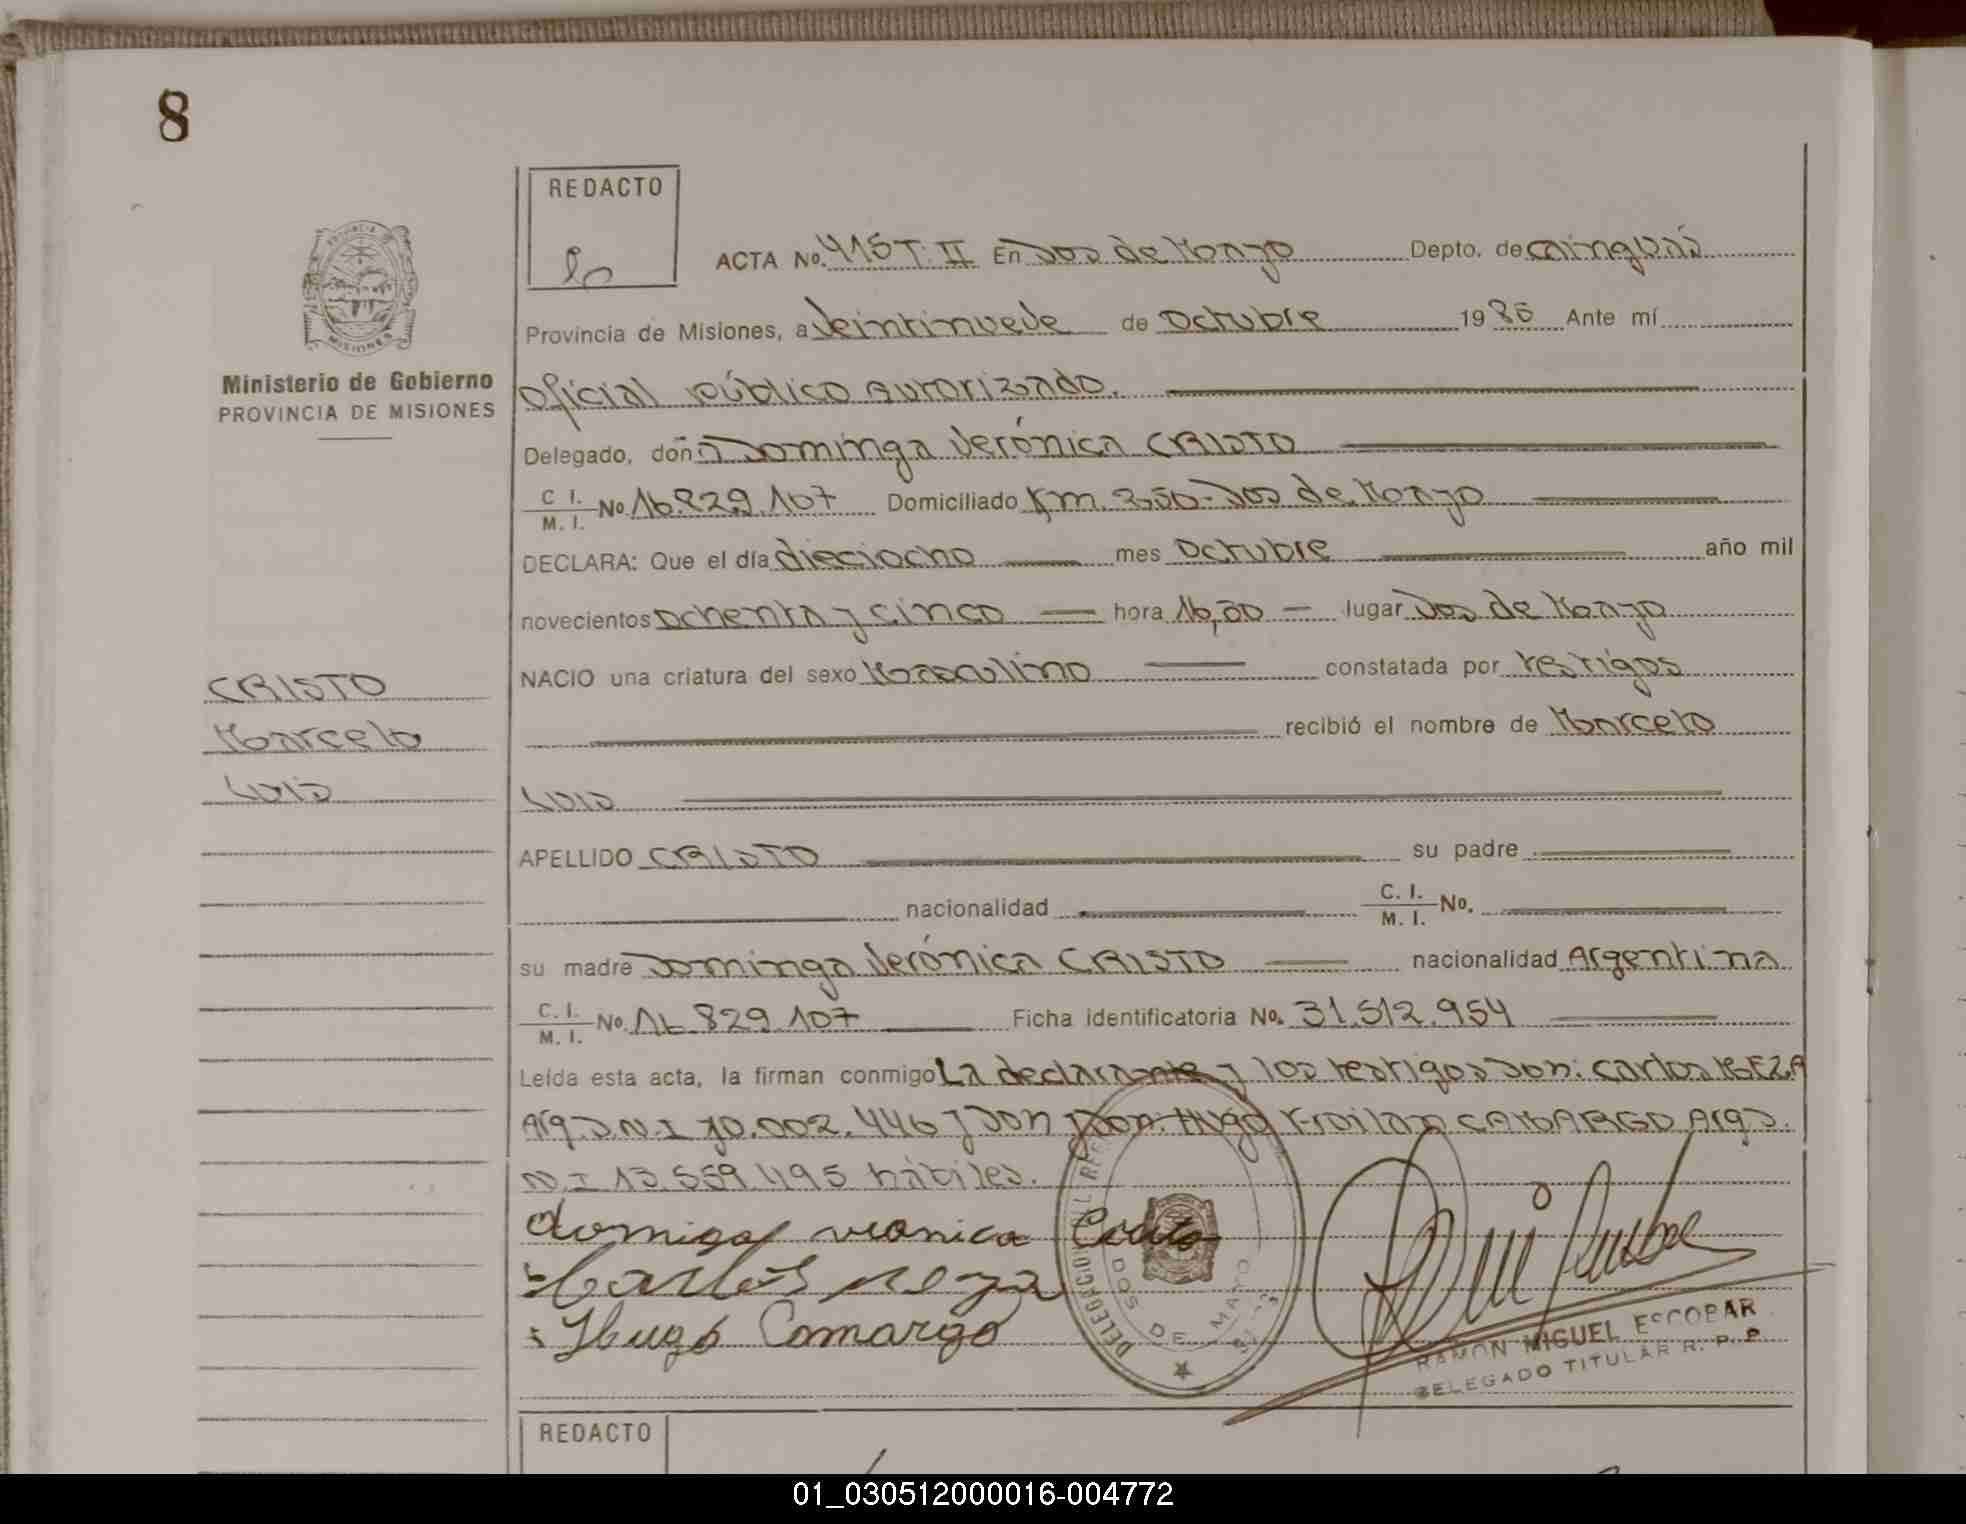 8
REDACTO
ACTA No. 415 T. II En Dos de Mayo Depto. de Cainguás
Provincia de Misiones, a Veintinueve de Octubre 1985 Ante mí
Oficial público Autorizado.
Ministerio de Gobierno
PROVINCIA DE MISIONES
Delegado, doña Dominga Verónica CRISTO
C. I. / M. I. No. 16.829.107 Domiciliado Km. 250-Dos de Mayo
DECLARA: Que el día dieciocho mes Octubre año mil
novecientos Ochenta y cinco hora 16,00 lugar Dos de Mayo
NACIO una criatura del sexo Masculino constatada por testigos
recibió el nombre de Marcelo
Luis
CRISTO
Marcelo
Luis
APELLIDO CRISTO su padre
nacionalidad C. I. / M. I. No.
su madre Dominga Verónica CRISTO nacionalidad Argentina
C. I. / M. I. No. 16.829.107 Ficha identificatoria No. 31.512.954
Leída esta acta, la firman conmigo La declarante y los testigos Don: Carlos MEZA
Arg. D.N.I 10.002.446 y Don Don: Hugo Froilan CAMARGO Arg. D.
N.I 13.559.495 hábiles.
Carlos meza
Hugo Camargo
DOS DE MAYO
RAMON MIGUEL ESCOBAR
DELEGADO TITULAR R. P. P.
REDACTO
01_030512000016-004772